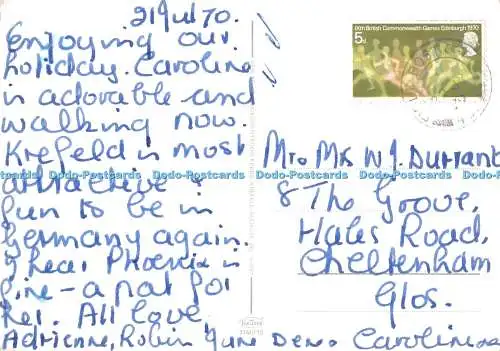 21 Jul 70.
Enjoying our
holiday. Caroline
is adorable and
walking now.
Krefeld is most
attractive &
fun to be in
Germany again.
I hear Phoenix is
fine - a pat for
her. All love
Adrienne, Robin June
Caroline
9th British Commonwealth Games Edinburgh 1970
5d
Mr & Mrs W J. Durrant
8 The Grove,
Hales Road,
Cheltenham
Glos.
Dodo-Postcards Dodo-Postcards Dodo-Postcards Dodo-Postcards